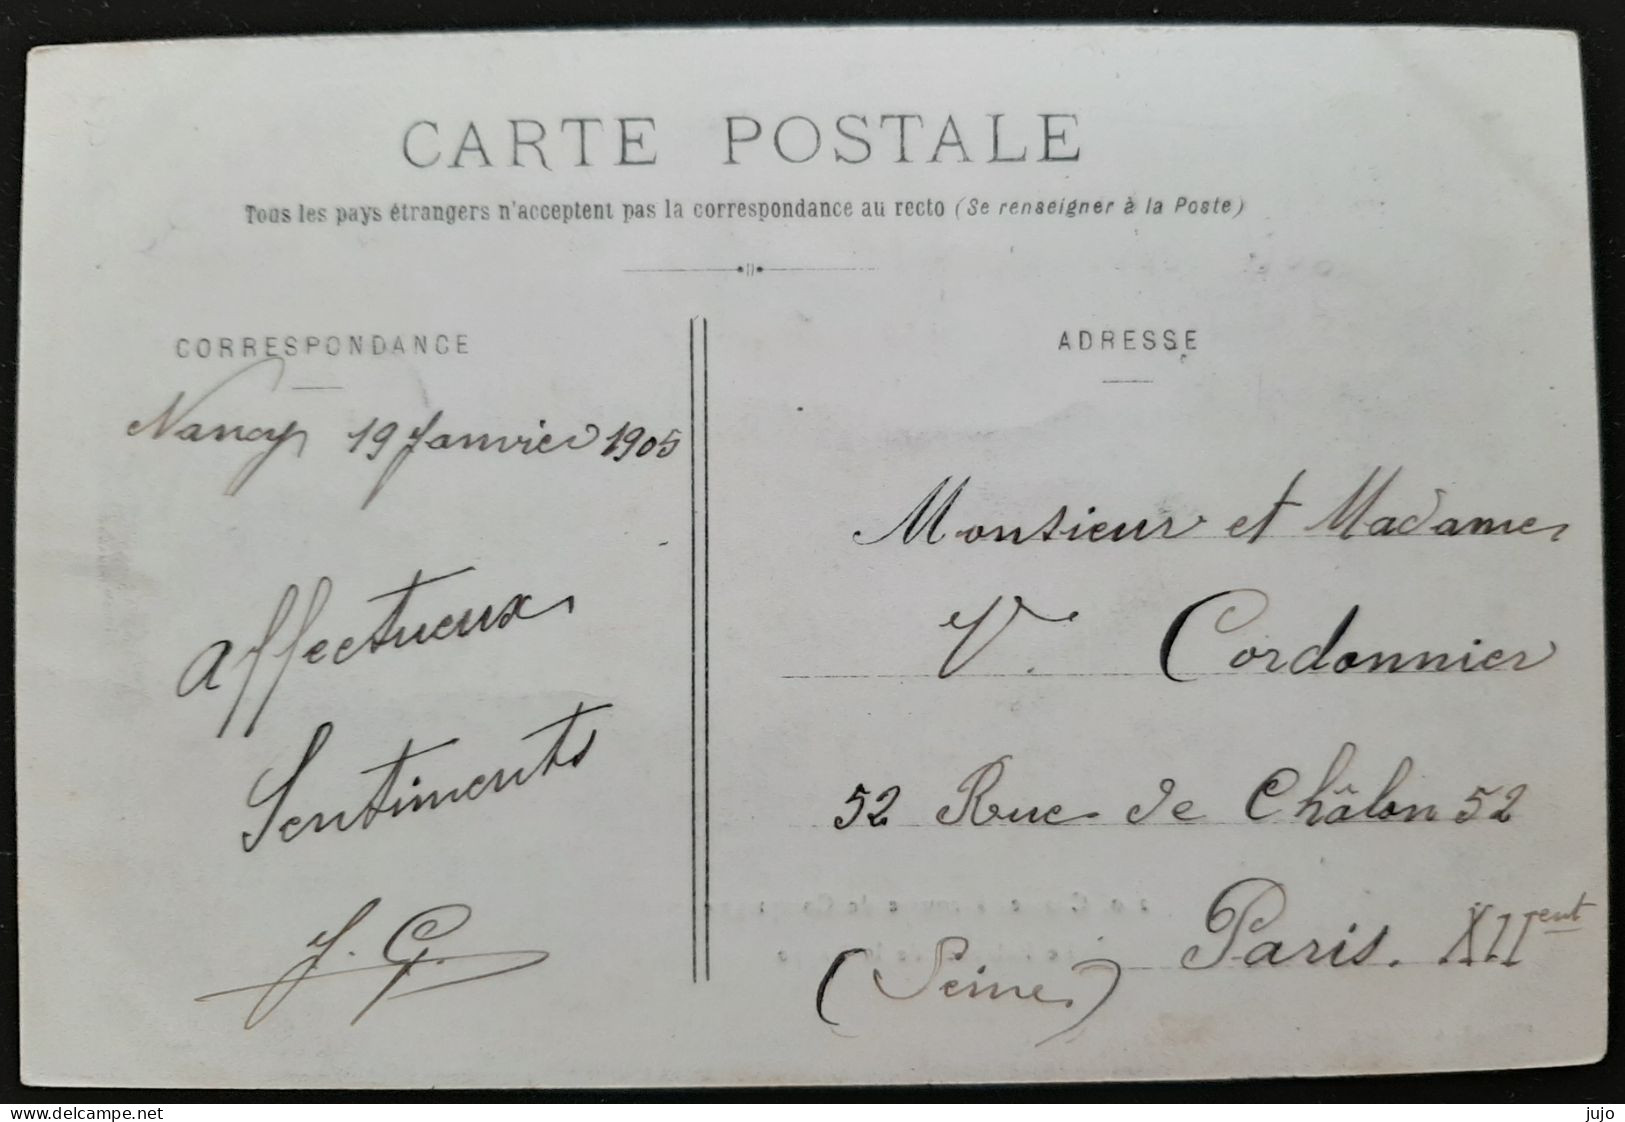 CARTE POSTALE
Tous les pays étrangers n'acceptent pas la correspondance au recto (Se renseigner à la Poste)
CORRESPONDANCE
Nancy 19 Janvier 1905
Affectueux
Sentiments
J. G.
ADRESSE
Monsieur et Madame
V. Cordonnier
52 Rue de Châlon 52
Paris. XII ent
(Seine)
www.delcampe.net
jujo